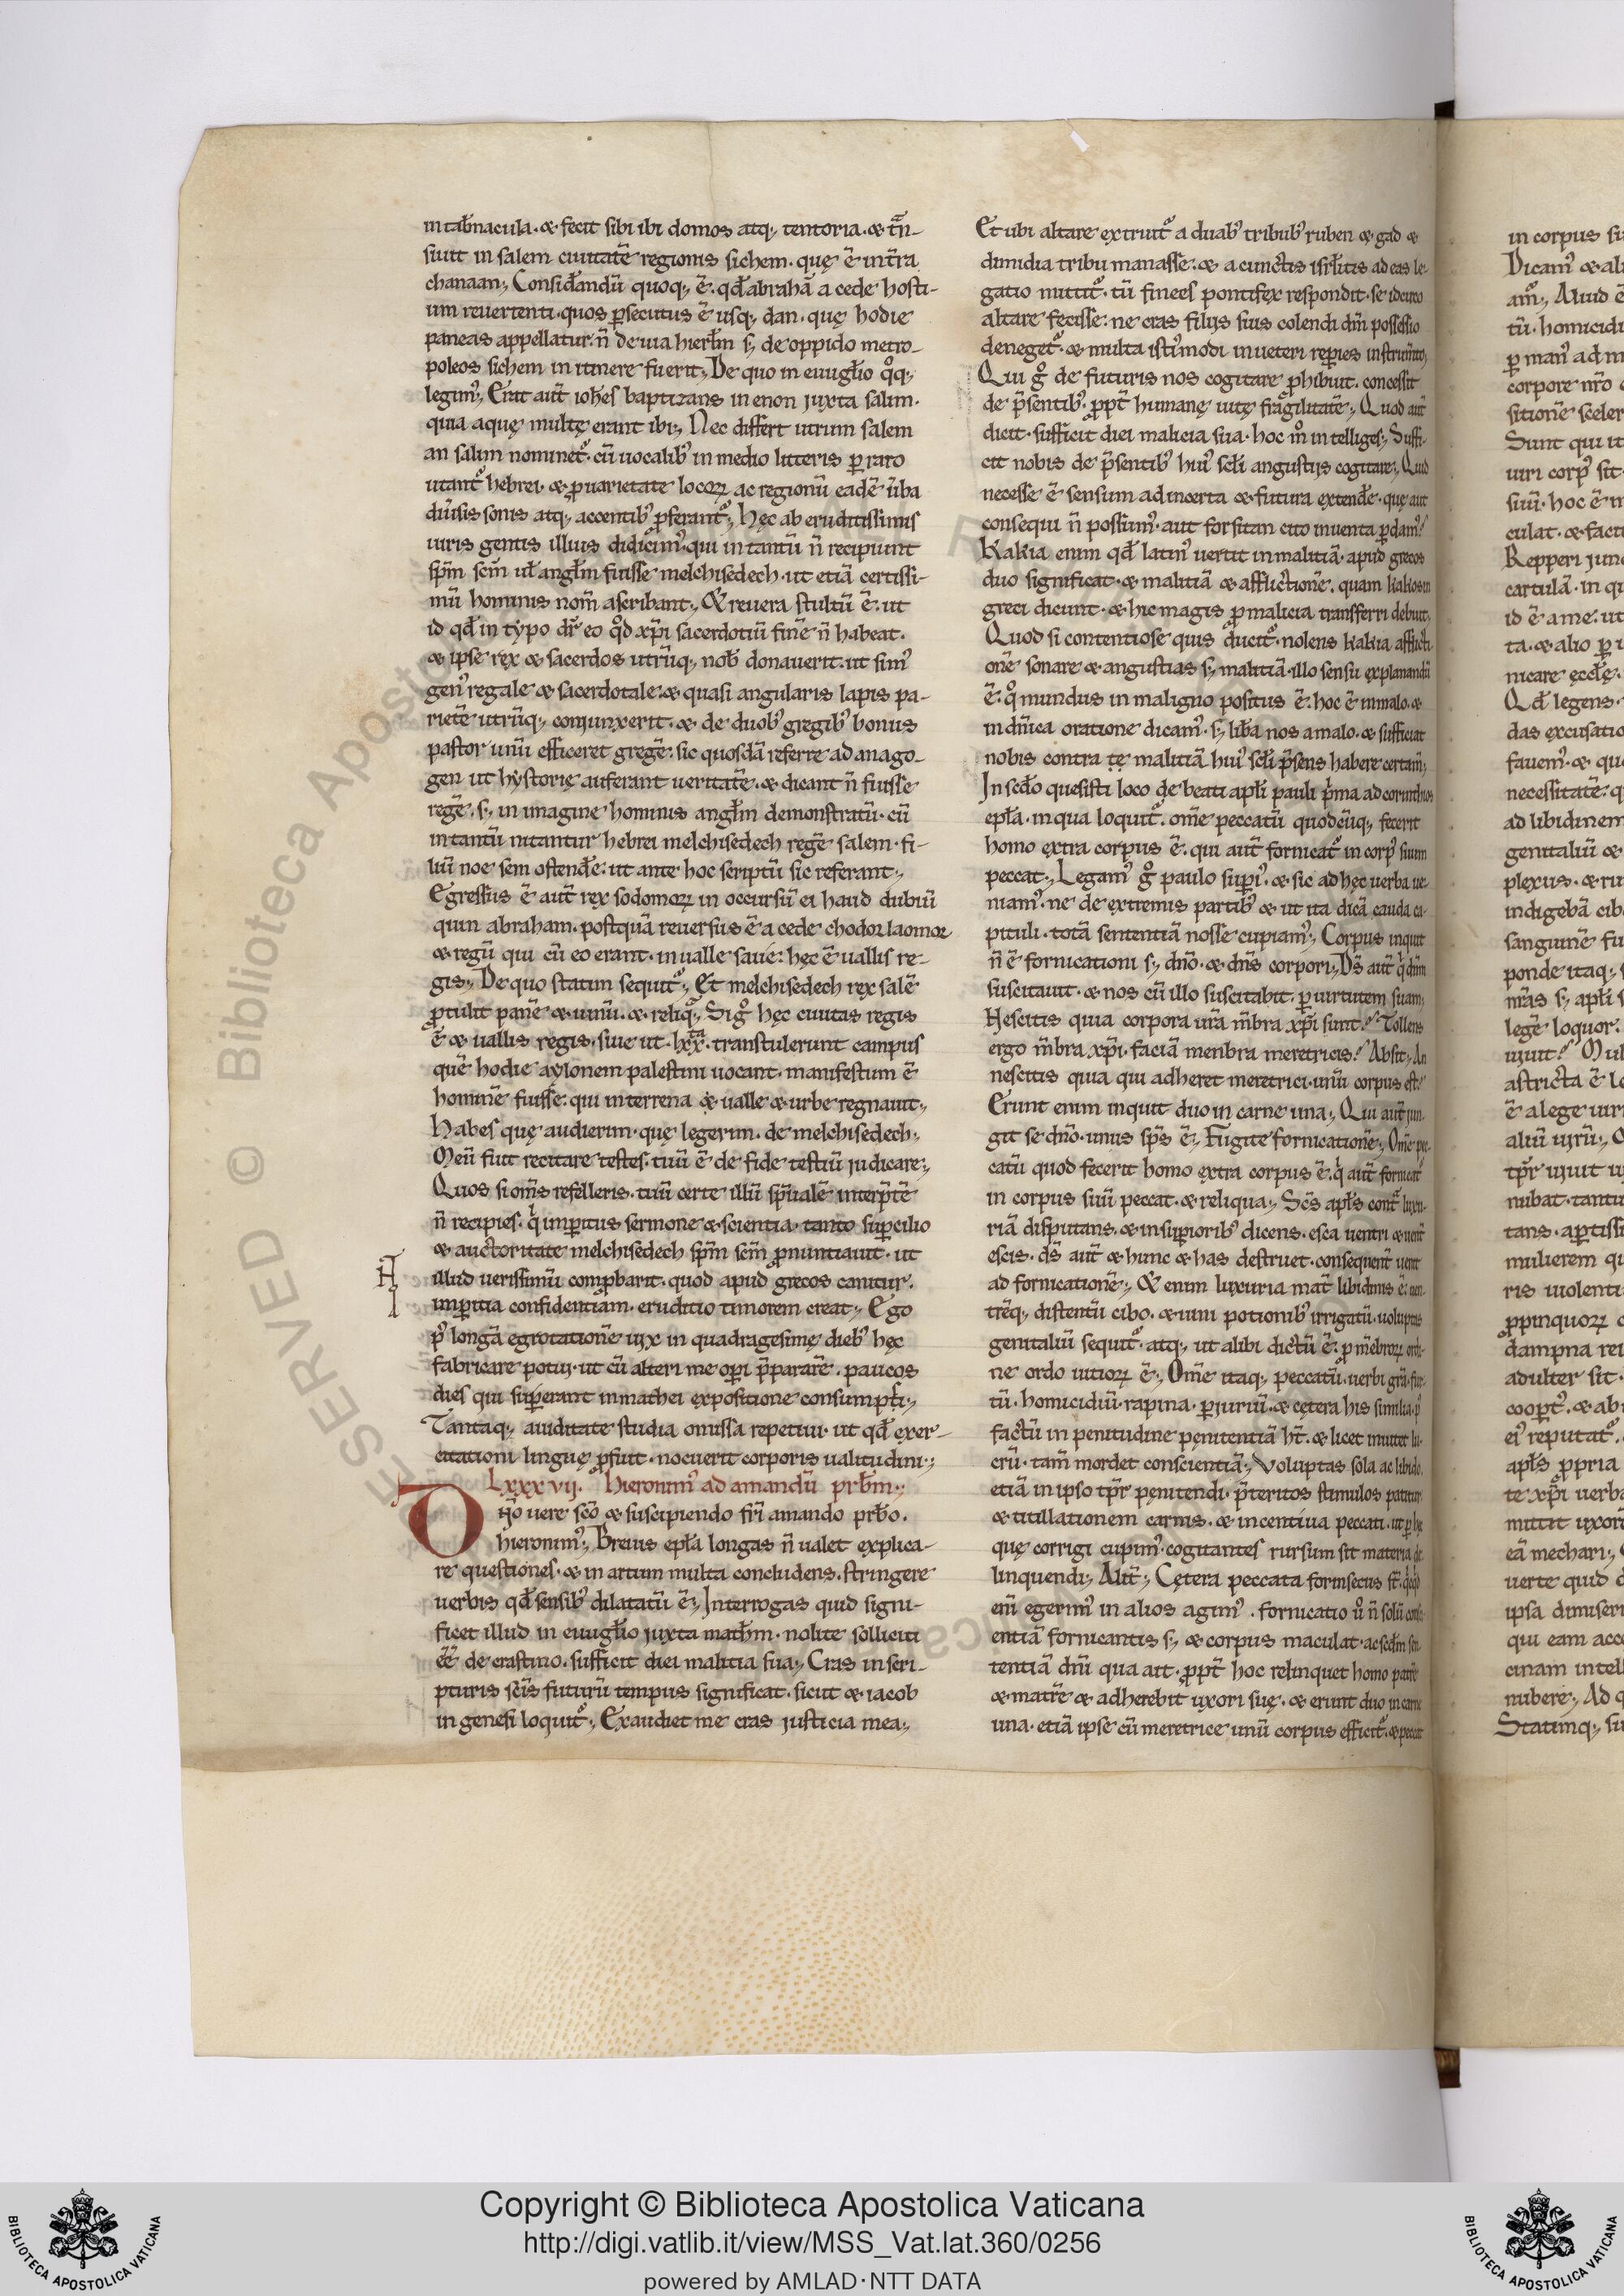 in tab̄nacula · & fecit sibi ibi domos atq; tentoria · & t̄n-
siuit in salem ciuitatē regionis sichem · quę ē in t̄ra
chanaan; Considandū quoq; ē · qd̄ abrahā a cede hosti-
um reuertenti · quos p̱secutus ē usq; dan · quę hodie
paneas appellatur · n̄ de uia hierl̄m s; de oppido metro-
poleos sichem in itinere fuerit; De quo in euuagl̄io qͦq;
legimꝰ; Erat aūt ioh̄es baptizans in enon juxta salim ·
quia aquę multę erant ibi; Nec differt utrum salem
an salim nominet᷑ · cū uocalibꝰ in medio litteris p̱raro
utant᷑ hebrei · & ꝓuarietate locoꝝ ac regionū eadē ūba
diūsis sonis atq; accentibꝰ p̱ferant᷑; Hęc ab eruditissimis
uiris gentis illius didicimꝰ · qui in tantū n̄ recipiunt
sp̄m sc̄m ul̄ angl̄m fuisse melchisedech · ut etiā certissi-
mū hominis nom̄ ascribant; & reuera stultū ē · ut
id qd̄ in typo dr̄ eo qͦd xp̄i sacerdotiū finē n̄ habeat ·
& ipse rex & sacerdos utrūq; nob̄ donauerit · ut simꝰ
genꝰ regale & sacerdotale · & quasi angularis lapis pa-
rietē utrūq; conjunxerit · & de duobꝰ gregibꝰ bonus
pastor unū efficeret gregē · sic quosdā referre ad anago-
gen ut hystorię auferant ueritatē · & dicant n̄ fuisse
regē · s; in imagine hominis angl̄m demonstratū · cū
in tantū nitantur hebrei melchisedech regē salem · fi-
liū noe sem ostend̄e · ut ante hoc scriptū sic referant;
Egressus ē aūt rex sodomoꝝ in occursū ei haud dubiū
quin abraham · postquā reuersus ē a cede chodorlaomor
& regū qui cū eo erant · in ualle saue · hęc ē uallis re-
gis; De quo statim sequit᷑; Et melchisedech rex salē
ꝓtulit panē & uinū · & reliq̄; Si gͦ hęc ciuitas regis
ē & uallis regis · siue ut · lxx · transtulerunt campus
quē hodie aylonem palestini uocant · manifestum ē
hominē fuisse · qui in terrena & ualle & urbe regnauit;
Habes quę audierim · quę legerim · de melchisedech;
Meū fuit recitare testes · tuū ē de fide testiū judicare;
Quos si om̄s refelleris · tuū certe illū sp̄ualē interp̄tē
n̄ recipies · qͥ imp̱itus sermone & scientia · tanto sup̱cilio
& auctoritate melchisedech sp̄m sc̄m ꝓnuntiauit · ut
illud uerissimū comꝓbarit · quod apud grecos canitur ·
imp̱itia confidentiam · eruditio timorem creat; Ego
pꝰ longā egrotationē uix in quadragesimę diebꝰ hęc
fabricare potui · ut cū alteri me op̱i p̄pararē · paucos
dies qui sup̱erant in mathei expositione consumpsi;
Tantaq; auiditate studia omissa repetiui · ut qd̄ exer-
citationi linguę ꝓfuit · nocuerit corporis ualitudini;
Lxxxvij · Hieronimꝰ ad amandū prb̄m;
Dn̄o uere sc̄o & suscipiendo fr̄i amando prb̄o ·
hieronimꝰ; Breuis epl̄a longas n̄ ualet explica-
re questiones · & in artum multa concludens · stringere
uerbis qd̄ sensibꝰ dilatatū ē; Interrogas quid signi-
ficet illud in euuagl̄io juxta math̄m · nolite solliciti
ēē de crastino · sufficit diei malitia sua; Cras in scri-
pturis sc̄is futurū tempus significat · sicut & iacob
in genesi loquit᷑; Exaudiet me cras justicia mea;
Et ubi altare extruit᷑ a duabꝰ tribubꝰ ruben & gad &
dimidia tribu manasse · & a cunctis isrl̄itis ad eas le-
gatio mittit᷑ · tū finees pontifex respondit · se idcirco
altare fecisse · ne cras filijs suis colendi dm̄ possessio
deneget᷑ · & multa isti modi in ueteri rep̱ies instrum̄to;
Qui gͦ de futuris nos cogitare ꝓhibuit · concessit
de p̄sentibꝰ ꝓpt̄ humanę uitę fragilitatē; Quod aūt
dicit · sufficit diei malicia sua · hoc mͦ intelliges; Suffi-
cit nobis de p̄sentibꝰ huiꝰ scl̄i angustijs cogitare; Quid
necesse ē sensum ad incerta & futura extend̄e · quę aut
consequi n̄ possimꝰ · aut forsitan cito inuenta p̱damꝰ?
Kakia enim qd̄ latinꝰ uertit in malitiā · apud grecos
duo significat · & malitiā & afflictionē · quam kakosin
greci dicunt · & hic magis ꝓ malicia transferri debuit;
Quod si contentiose quis ducit᷑ · nolens kakia afflicti-
onē sonare & angustias s; malitiā · illo sensu explanandū
ē · qͦ mundus in maligno positus ē · hoc ē in malo · &
in dn̄ica oratione dicamꝰ · s; lib̄a nos a malo · & sufficiat
nobis contra tę malitiā huiꝰ scl̄i p̄sens habere certam̄;
In scd̄o quesisti loco de beati apl̄i pauli p̄ma ad corinthios
epl̄a · in qua loquit᷑ · om̄e peccatū quodcūq; fecerit
homo extra corpus ē · qui aūt fornicat᷑ in corpꝰ suum
peccat; Legamꝰ gͦ paulo sup̱iꝰ · & sic ad hęc uerba ue-
niamꝰ · ne de extremis partibꝰ & ut ita dicā cauda ca-
pituli · totā sententiā nosse cupiamꝰ; Corpus inquit
n̄ ē fornicationi s; dn̄o · & dn̄s corpori; Ds̄ aūt & dn̄m
suscitauit · & nos cū illo suscitabit · p̱ uirtutem suam;
Nescitis quia corpora ur̄a m̄bra xp̄i sunt? Tollens
ergo m̄bra xp̄i · faciā menbra meretricis? Absit; An
nescitis quia qui adheret meretrici · unū corpus est?
Erunt enim inquit duo in carne una; Qui aūt jun-
git se dn̄o · unus sp̄s ē; Fugite fornicationē; Om̄e pec-
catū quod fecerit homo extra corpus ē · qͥ aūt fornicat᷑
in corpus suū peccat · & reliqua; Sc̄s apl̄s cont̄ luxu-
riā disputans · & in sup̱ioribꝰ dicens · esca uentri & uent̄
escis · ds̄ aūt & hunc & has destruet · consequent̄ uenit
ad fornicationē; & enim luxuria mat̄ libidinis ē · uen-
trēq; distentū cibo · & uini potionibꝰ irrigatū · uoluptas
genitaliū sequit᷑ · atq; ut alibi dictū ē · ꝓ m̄ebroꝝ ordi-
ne ordo uitioꝝ ē; Om̄e itaq; peccatū · uerbi grā · fur-
tū · homicidiū · rapina · p̱juriū · & cętera his similia · pꝰ
factū in penitudine pęnitentiā ht̄ · & licet inuitet lu-
crū · tam̄ mordet conscientiā; Voluptas sola ac libido ·
etiā in ipso tpr̄ pęnitendi · p̄teritos stimulos patitur
& titillationem carnis · & incentiua peccati · ut p̱ hęc
quę corrigi cupimꝰ · cogitantes rursum sit materia de-
linquendi; Alit̄; Cętera peccata forinsecus st̄ ·
enī egerimꝰ in alios agimꝰ · fornicatio ū n̄ solū consci-
entiā fornicantis s; & corpus maculat · ac scd̄m sen-
tentiā dn̄i qua ait · ꝓpt̄ hoc relinquet homo patrē
& matrē & adherebit uxori suę · & erunt duo in carne
una · etiā ipse cū meretrice unū corpus efficit᷑ · & peccat
Copyright © Biblioteca Apostolica Vaticana
http://digi.vatlib.it/view/MSS_Vat.lat.360/0256
powered by AMLAD·NTT DATA